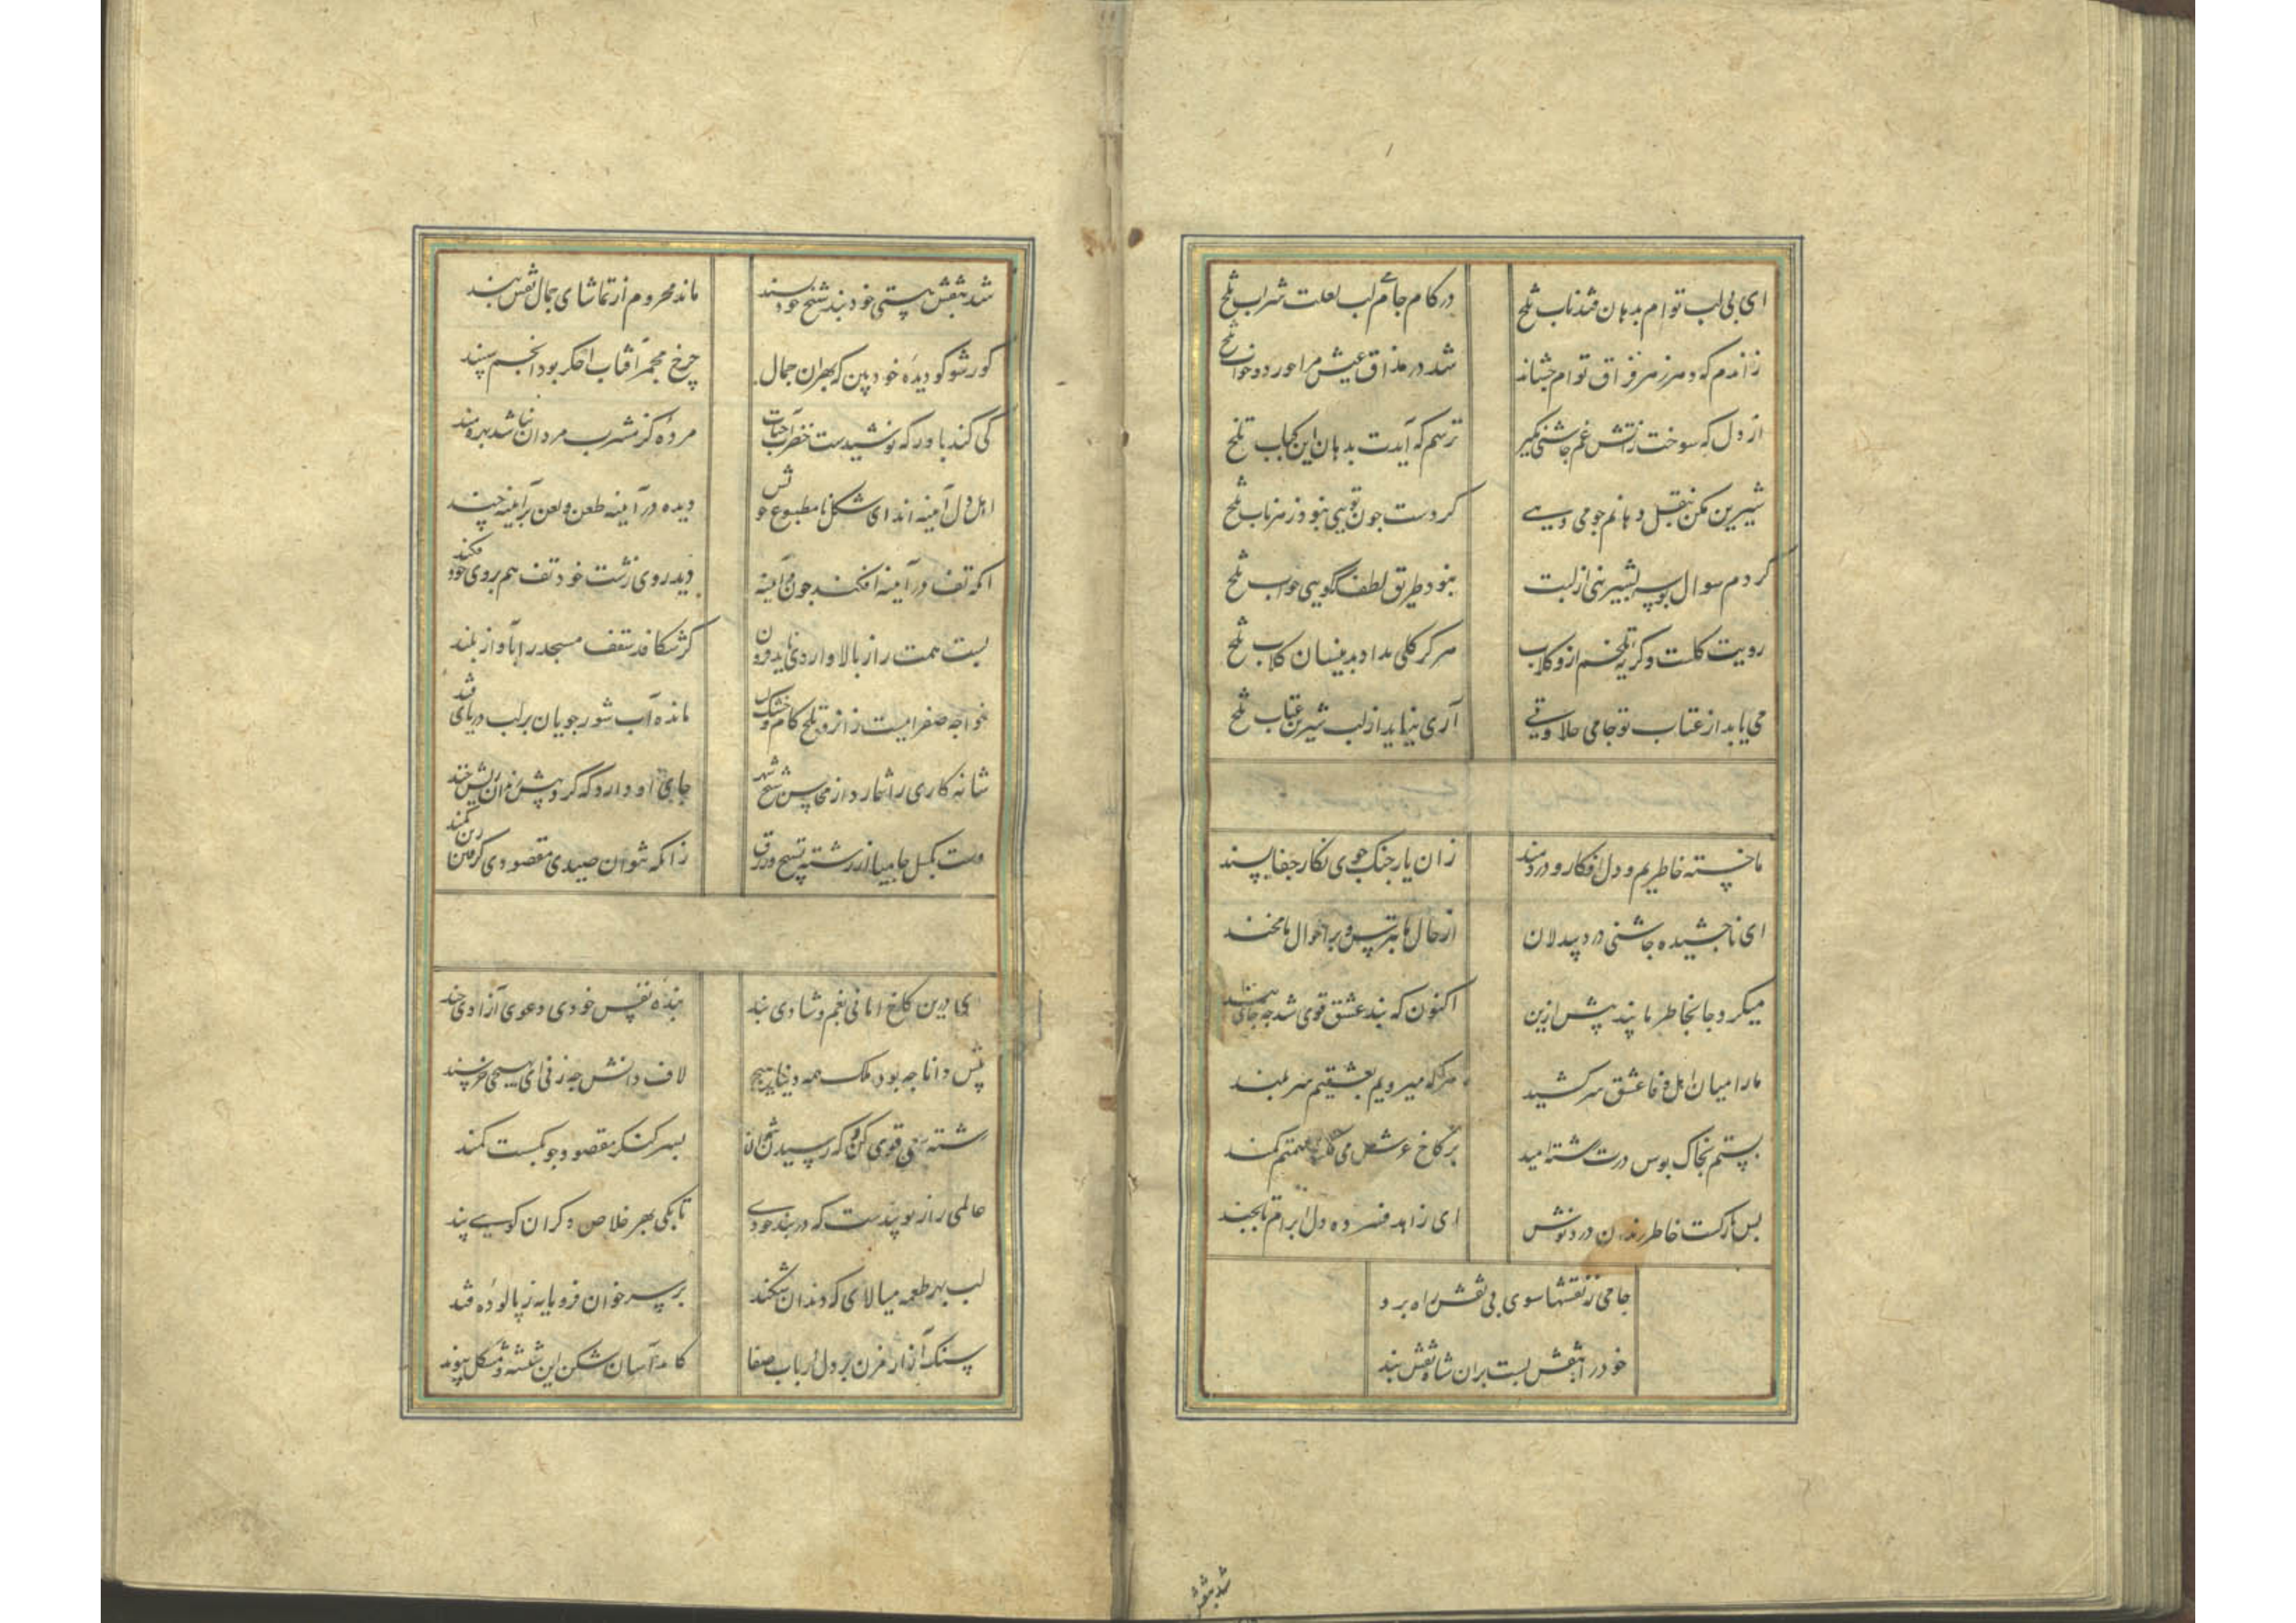 ای بی لب توام بدهان قند ناب تلخ
در کام جانم لب لعلت شراب تلخ
زاندم که دهر زهر فراق توام چشاند
شد در مذاق عیش مرا خورد و خواب تلخ
از دل که سوخت زآتش غم چاشنی مگیر
ترسم که آیدت بدهان این کباب تلخ
شیرین مکن بنقل دهانم چو می دهی
کردست چون تویی نبود زهر ناب تلخ
کردم سوال بوسه بشیرینی از لبت
نبود طریق لطف نگویی جواب تلخ
رویت کلست و کریه تلخم ازو کلاب
هرکز کلی نداد بدینسان کلاب تلخ
می یابد از عتاب تو جامی حلاوتی
آری نیاید از لب شیرین عتاب تلخ
ما خسته خاطریم و دل افکار و دردمند
زان یار جنک جوی نکار جفا پسند
ای ناچشیده چاشنی درد بیدلان
از حال ما بترس و بر احوال ما مخند
میکرد جا بخاطر ما پند پیش ازین
اکنون که بند عشق قوی شد چه جای پند
ما را میان اهل وفا عشق سر کشید
هر جا که میرویم بعشقیم سر بلند
بستم بخاک بوس درت رشته امید
بر کاخ عرش می فکند همتم کمند
بس نازکست خاطر رندان درد نوش
ای زاهد فسرده دل ابرام تا بچند
جامی ز نقشها سوی بی نقش راه برد
خود را بنقش بست بران شاه نقش بند
شد بنقش
شد بنقش هستی خود بند شیخ خود پسند
ماند محروم از تماشای جمال نقش بند
کور شو کو دیده خود بین که بهر آن جمال
چرخ مجمر آفتاب اخکر بود انجم سپند
کی کند باور که نوشیدست خضر آب حیات
مرده کز مشرب مردان نباشد بهره مند
اهل دل آیینه اند ای شکل نامطبوع خوش
دیده در آیینه طعن و لعن بر آیینه چند
آنکه تف در آیینه افکند چون در آیینه
دید روی زشت خود تف هم بروی خود فکند
پست همت راز بالا وارد ی ناید فرون
کر شکافد سقف مسجد را بآواز بلند
خواجه صفراییست زانرو تلخ کام و خشک لب
مانده آب شور جویان بر لب دریای قند
شانه کاری را شمارد از محاسن شیخ شهر
جای او دارد که کردیش زان ریش خند
دست بکسل جامیا از رشته تسبیح و زرق
زانکه نتوان صیدی مقصودی کرفتن زین کمند
ای درین کاخ امانی بغم و شادی بند
بنده نفس خودی دعوی آزادی چند
پیش دانا چه بود ملک همه دنیا هیچ
لاف دانش چه زنی ای بهیچی خرسند
رشته سعی قوی کن که رسیدن نتوان
بسر کنکر مقصود چو سستست کمند
عالمی راز تو پندست که در بند خودی
تا بکی بهر خلاص دکران کویی پند
لب بهر طعمه میالای که دندان شکند
بر سر خوان فرومایه ز پالوده قند
سنک آزار مزن بر دل ارباب صفا
کامد آسان شکن این شیشه و مشکل پیوند